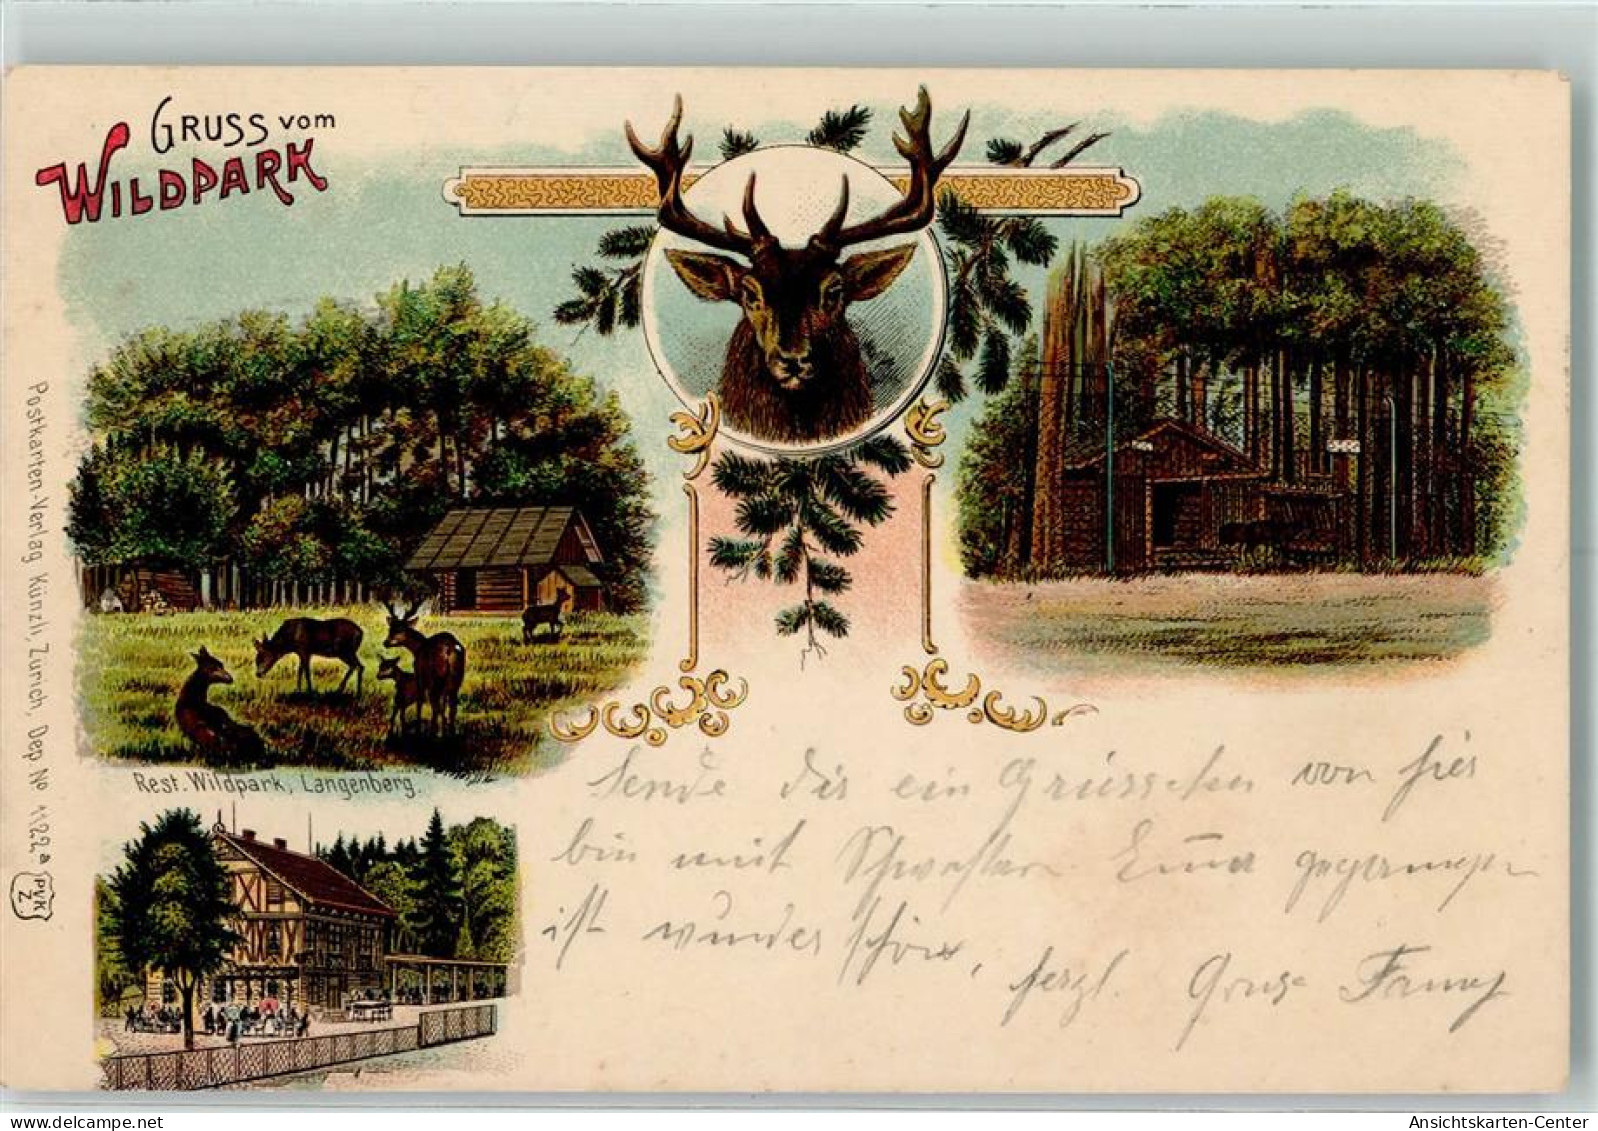 GRUSS vom
WILDPARK
Rest. Wildpark, Langenberg.
Postkarten-Verlag Künzli, Zürich, Dep. No 1122a
PVK
Z
Sende dir ein Grüsschen von hier
bin mit Schwester Emma gegangen
ist wunder schön,
herzl. Gruss Fanny
AnsichtsKarten-Center